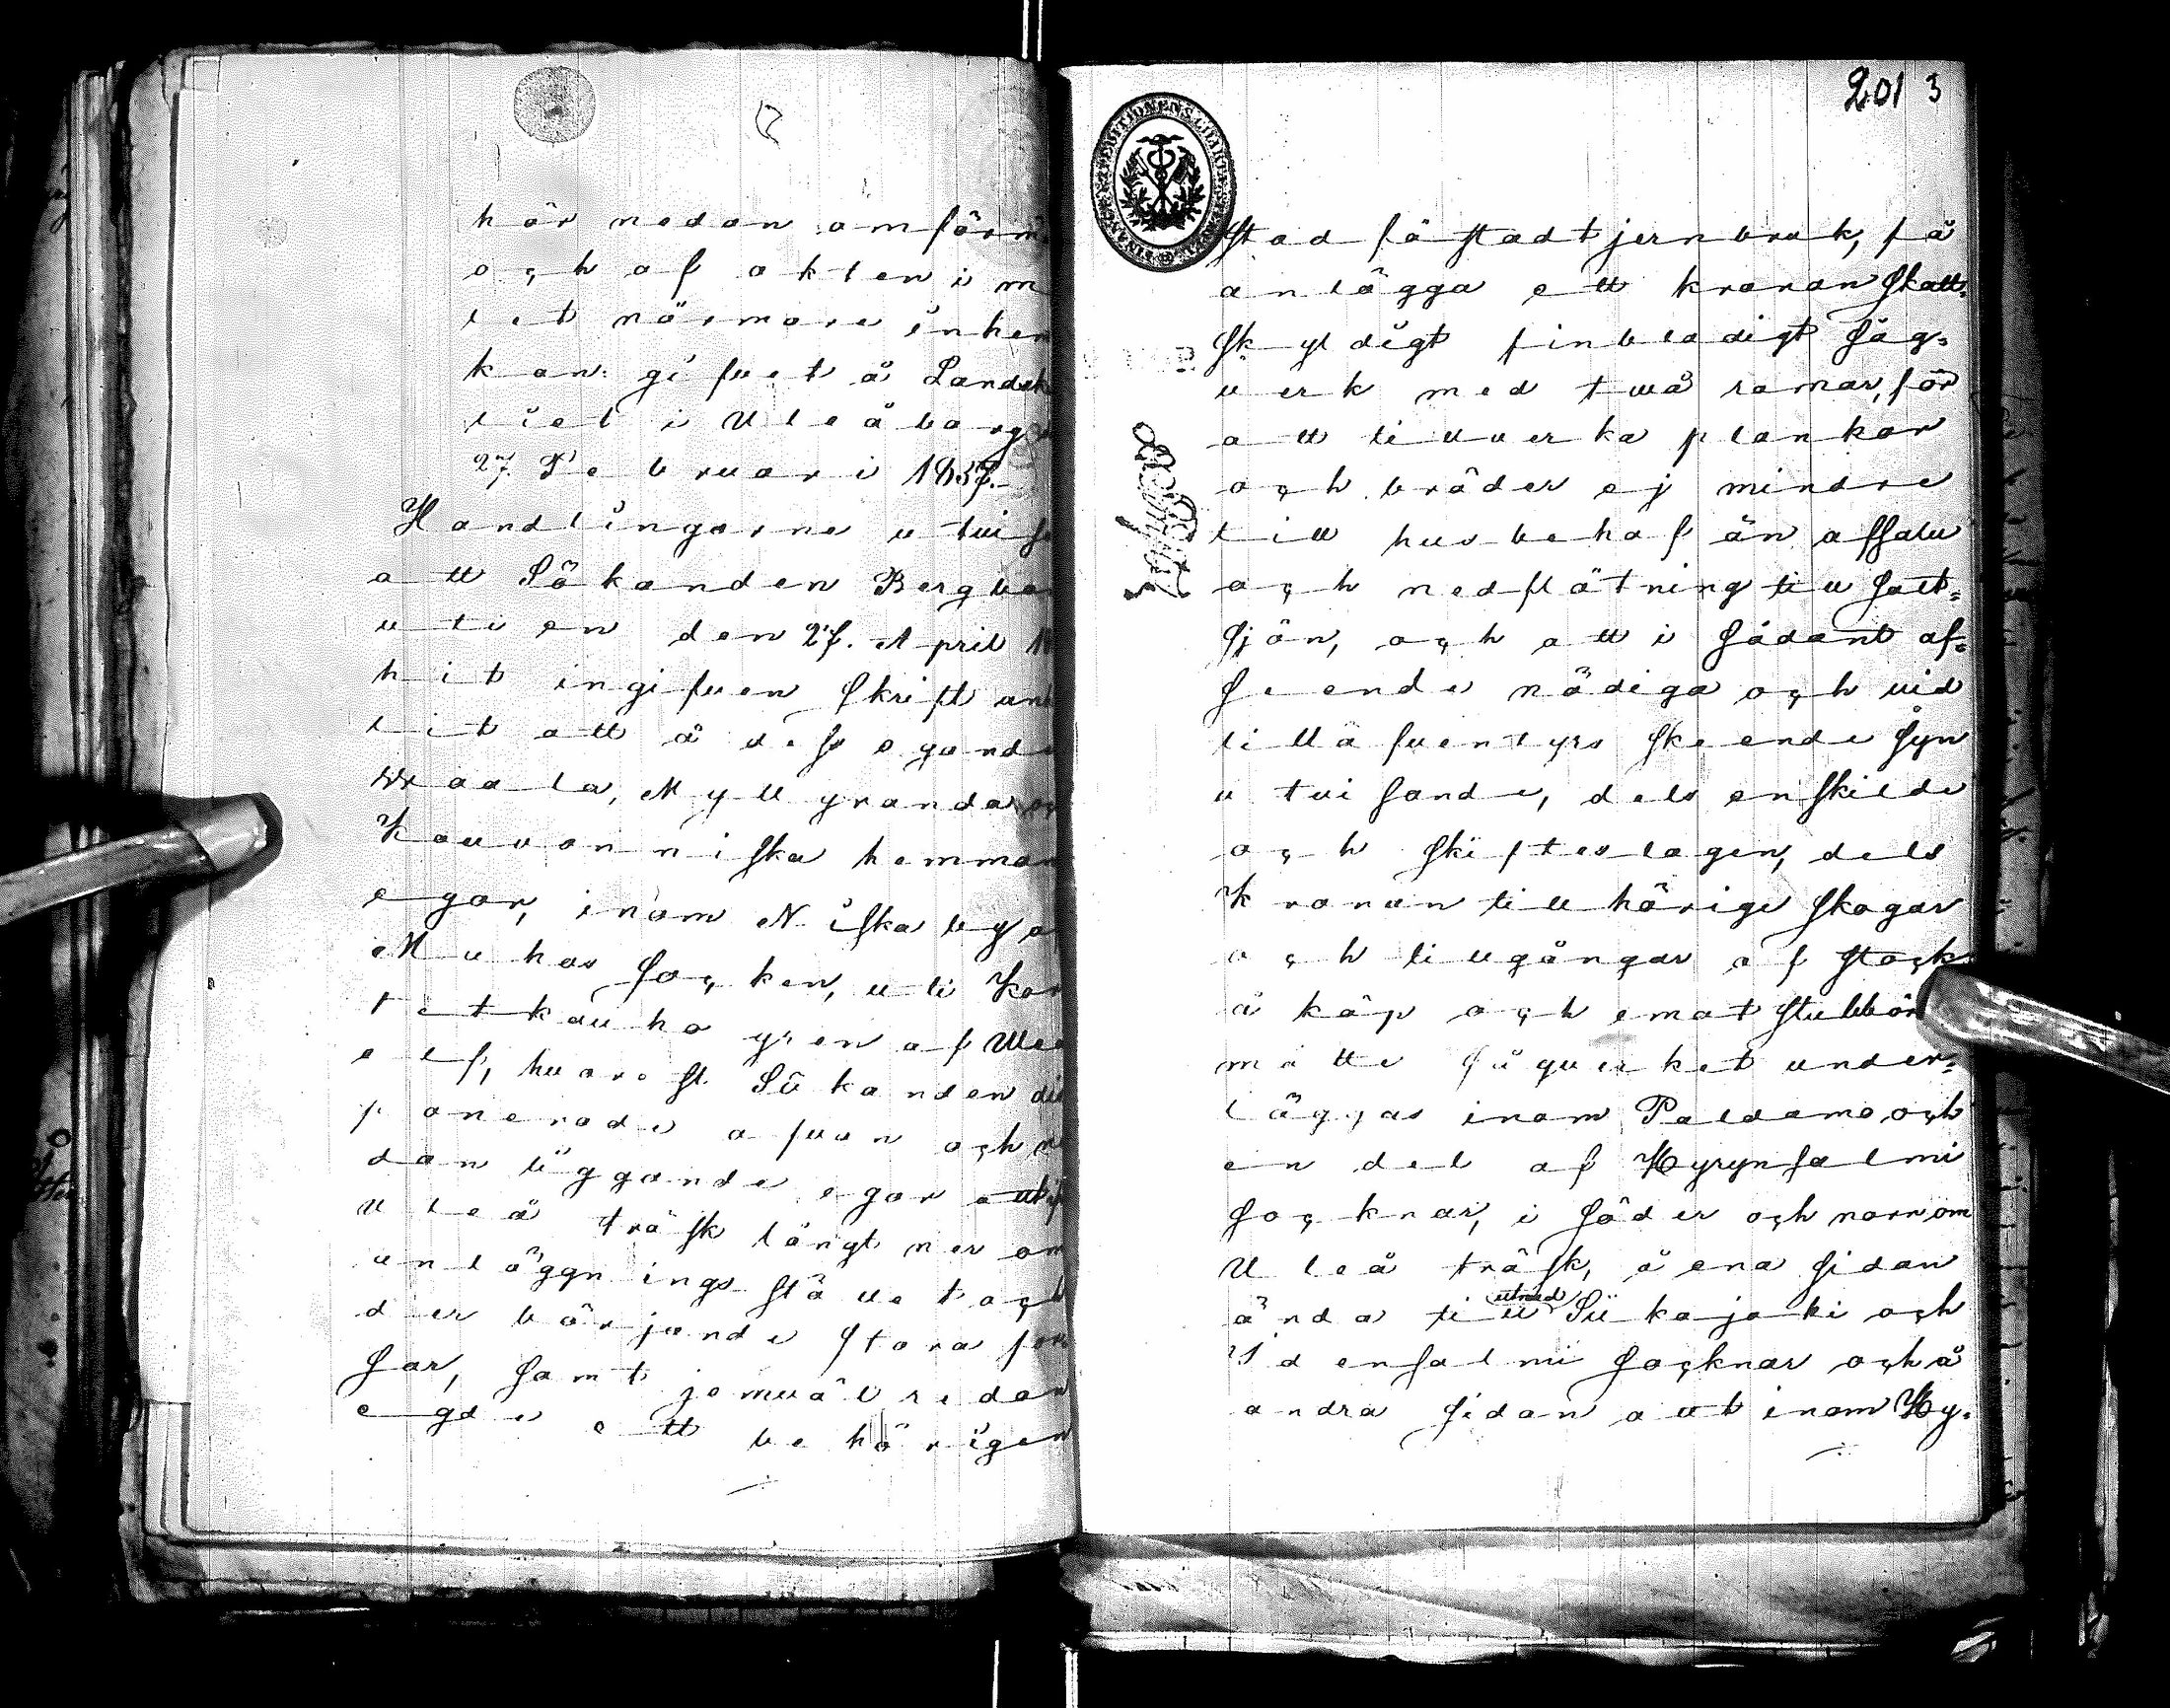 här nedan omförm
och af akten i m
let närmare inhem
kan: gifvet å Landsk
liet i Uleåborg
27. Februari 1857.
Handlingarne utvisa
att Sökanden Bergbo
uti en den 27. April 18
hit ingifven skrift anh
lit att å dess egande
Waala, Myllyranda, oc
Kouvonniska hemman
egor, inom Niska by a
Muhos socken, uti
gren af Uleå
elf, hvarest Sökanden dis
ponerade ofvan och n
dan liggande egor
Uleå träsk längt ner om
anläggningsstället och
der börjande stora for
sar, samt jemväl redan
egde ett behörigen
201 3
stadfästadt jernbruk, få
anlägga ett kronan skatt-
skyldigt finbladigt såg-
verk med två ramar, för
att tillverka plankor
och bräder ej mindre
till husbehof än afsalu
och nedflötning till salt-
sjön, och att i sådant af-
seende nödiga och vid
tilläfventyrs skeende syn
utvisande, dels enskilde
och skifteslagen, dels
Kronan tillhörige skogar
och tillgångar af stock
å köp och emot stubbör
måtte sågverket under-
läggas inom Paldamo och
en del af Hyrynsalmi
socknar, i söder och norr om
Uleå träsk, å ena sidan
ända till Siikajoki och
Idensalmi socknar och å
andra sidan allt inom Hy-